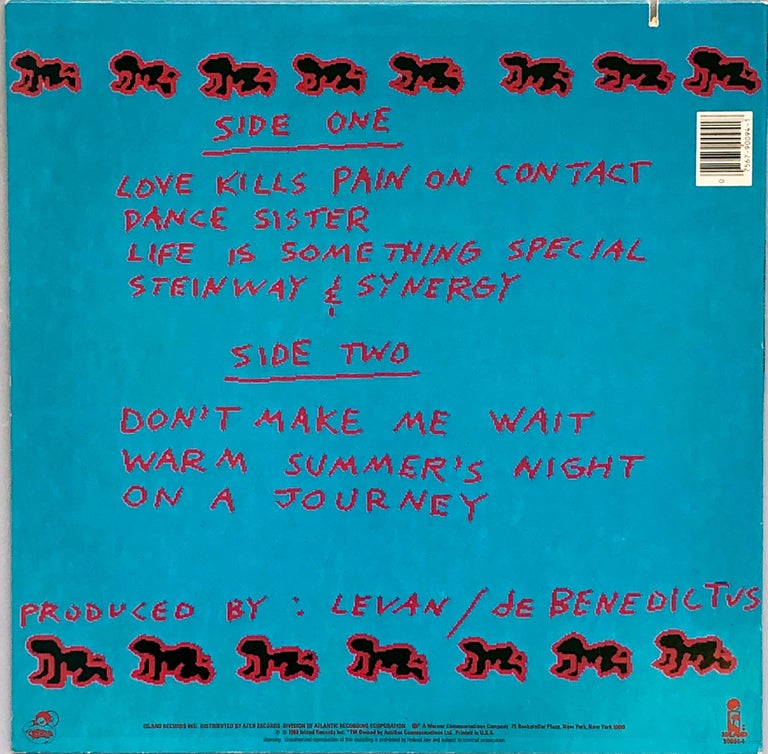 SIDE ONE
0 7567-90094-1
LOVE KILLS PAIN ON CONTACT
DANCE SISTER
LIFE IS SOMETHING SPECIAL
STEINWAY & SYNERGY
SIDE TWO
DON'T MAKE ME WAIT
WARM SUMMER'S NIGHT
ON A JOURNEY
PRODUCED BY : LEVAN / de BENEDICTUS
ISLAND RECORDS INC. DISTRIBUTED BY ATCO RECORDS DIVISION OF ATLANTIC RECORDING CORPORATION A Warner Communications Company 75 Rockefeller Plaza, New York, New York 10019
Island Records Inc. Printed in U.S.A.
Warning: Unauthorized reproduction of this recording is prohibited by Federal law and subject to criminal prosecution.
ISLAND
90094-1